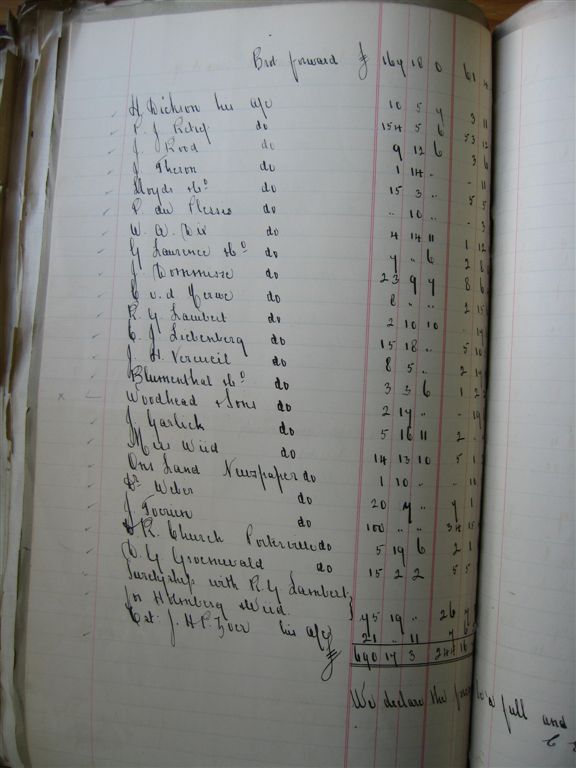 Brd forward £ 167 18 0 61
H Dickson his a/c 10 5 7 3 11
P. J. Retief do 154 5 6 53 12
J. Rood do 9 12 6 3 6
J. Theron do 1 14 .. - 11
Lloyds & Co do 15 3 .. 5 5
P. du Plessis do .. 10 .. - 3
W. A. Dix do 4 14 11 1 12
G Laurence & Co do 7 .. 6 2 8
J. Dommisse do 23 9 7 8 6
C v. d Merwe do 8 .. .. 2 15
R. G Lambert do 2 10 10 - 17
C. J. Liebenberg do 15 18 .. 5 10
J. H. Vercueil do 8 5 .. 2 17
Blumenthal & Co do 3 3 6 1 2
Woodhead & Sons do 2 17 .. - 19
J Garlick do 5 16 11 2
Miss Wiid do 14 13 10 5 1
Ons Land Newspaper do 1 10 .. .. 10
Dr Weber do 20 7 .. 7 1
J Toerien do 100 .. .. 34 15
D R. Church Porterville do 5 19 6 2 1
D. G Groenewald do 15 2 2 5 5
Suretyship with R. G Lambert
for & Wiid. } 75 19 .. 26 7
Est: J. H P. his a/c 21 .. 11 7 6
£ 690 17 3 244 16
We declare the full and